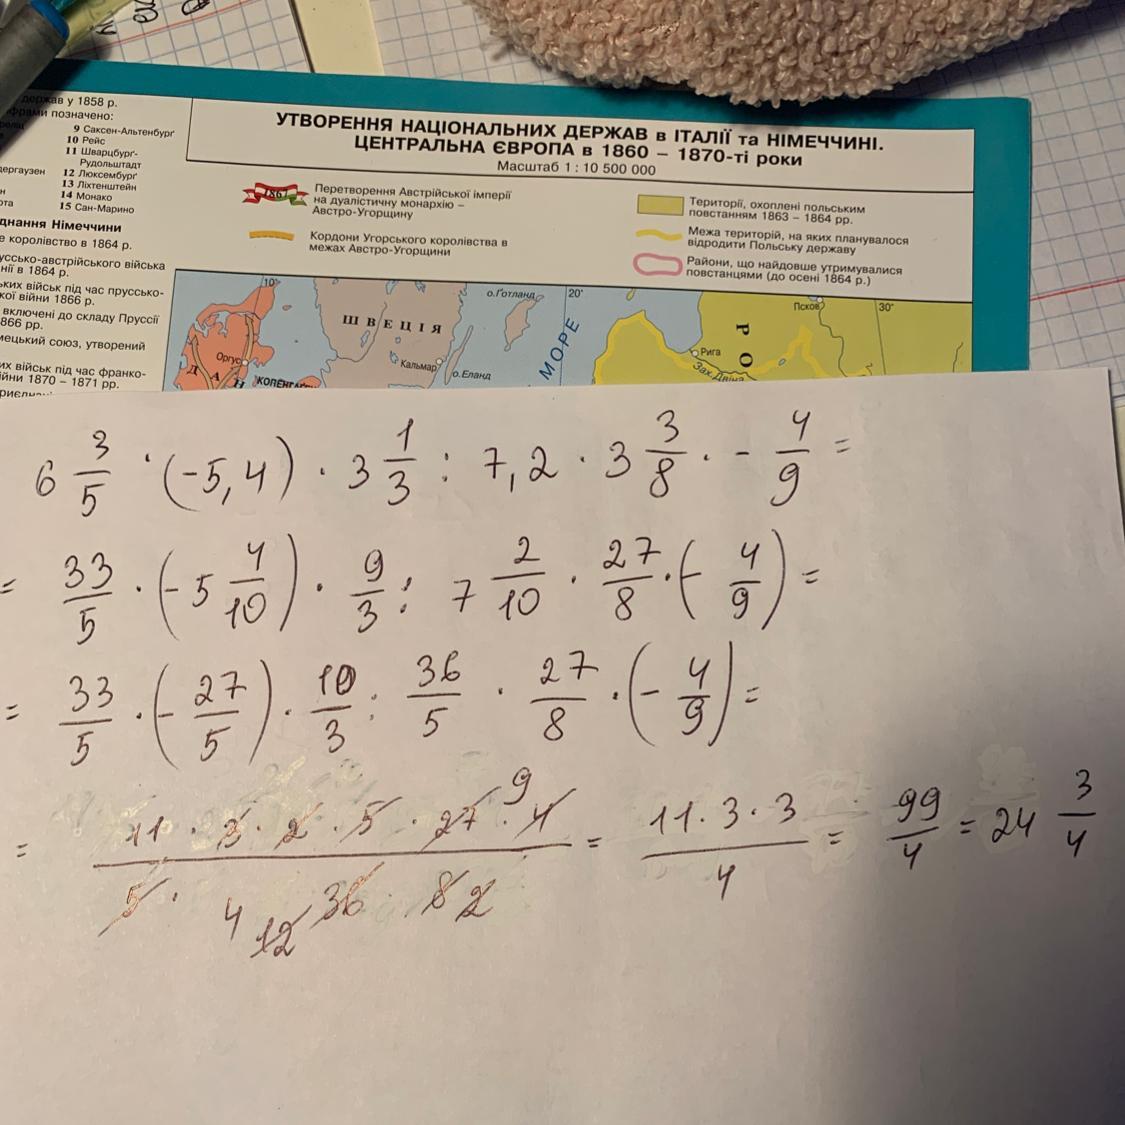 держав у 1858 р.
фрами позначено:
9 Саксен-Альтенбурґ
10 Рейс
11 Шварцбурґ-
Рудольштадт
12 Люксембурґ
13 Ліхтенштейн
14 Монако
15 Сан-Марино
днання Німеччини
е королівство в 1864 р.
уссько-австрійського війська
нії в 1864 р.
ьких військ під час пруссько-
кої війни 1866 р.
включені до складу Пруссії
866 рр.
мецький союз, утворений
их військ під час франко-
ійни 1870 – 1871 рр.
УТВОРЕННЯ НАЦІОНАЛЬНИХ ДЕРЖАВ в ІТАЛІЇ та НІМЕЧЧИНІ.
ЦЕНТРАЛЬНА ЄВРОПА в 1860 – 1870-ті роки
Масштаб 1 : 10 500 000
1867
Перетворення Австрійської імперії
на дуалістичну монархію –
Австро-Угорщину
Кордони Угорського королівства в
межах Австро-Угорщини
Території, охоплені польським
повстанням 1863 – 1864 рр.
Межа територій, на яких планувалося
відродити Польську державу
Райони, що найдовше утримувалися
повстанцями (до осені 1864 р.)
10°
о.Готланд
20°
Псков
30°
ШВЕЦІЯ
МОРЕ
Р О
Оргус
Кальмар
о.Еланд
Рига
Зах.Двіна
ДАН
6 3/5 · (-5,4) · 3 1/3 : 7,2 · 3 3/8 · - 4/9 =
= 33/5 · (-5 4/10) · 9/3 : 7 2/10 · 27/8 · (- 4/9) =
= 33/5 · (- 27/5) · 10/3 : 36/5 · 27/8 · (- 4/9) =
9
= 11 · 3 · 2 · 5 · 27 · 4 / 5 · 4 12 36 · 8 2 = 11 · 3 · 3 / 4 = 99/4 = 24 3/4